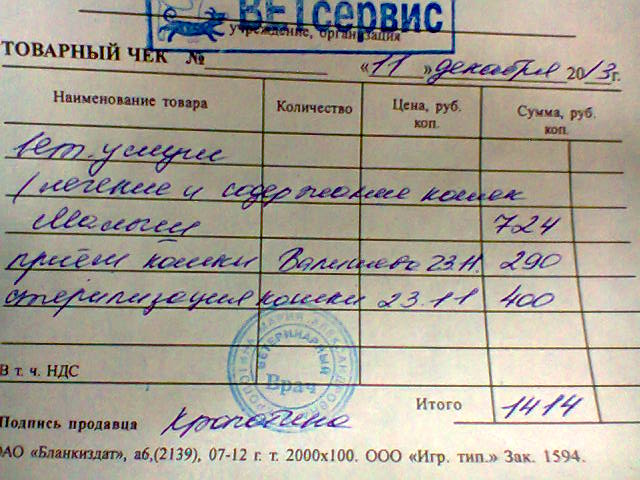 ВЕТсервис
учреждение, организация
ТОВАРНЫЙ ЧЕК № «11» декабря 2013г.
Наименование товара Количество Цена, руб. коп. Сумма, руб. коп.
Вет. услуги
(лечение и содержание кошек
Малыши 724
приём кошки 23.11. 290
стерилизация кошки 23.11 400
В т. ч. НДС
ВЕТЕРИНАРНЫЙ
Врач
Итого 1414
Подпись продавца Кропотина
ОАО «Бланкиздат», а6,(2139), 07-12 г. т. 2000х100. ООО «Игр. тип.» Зак. 1594.